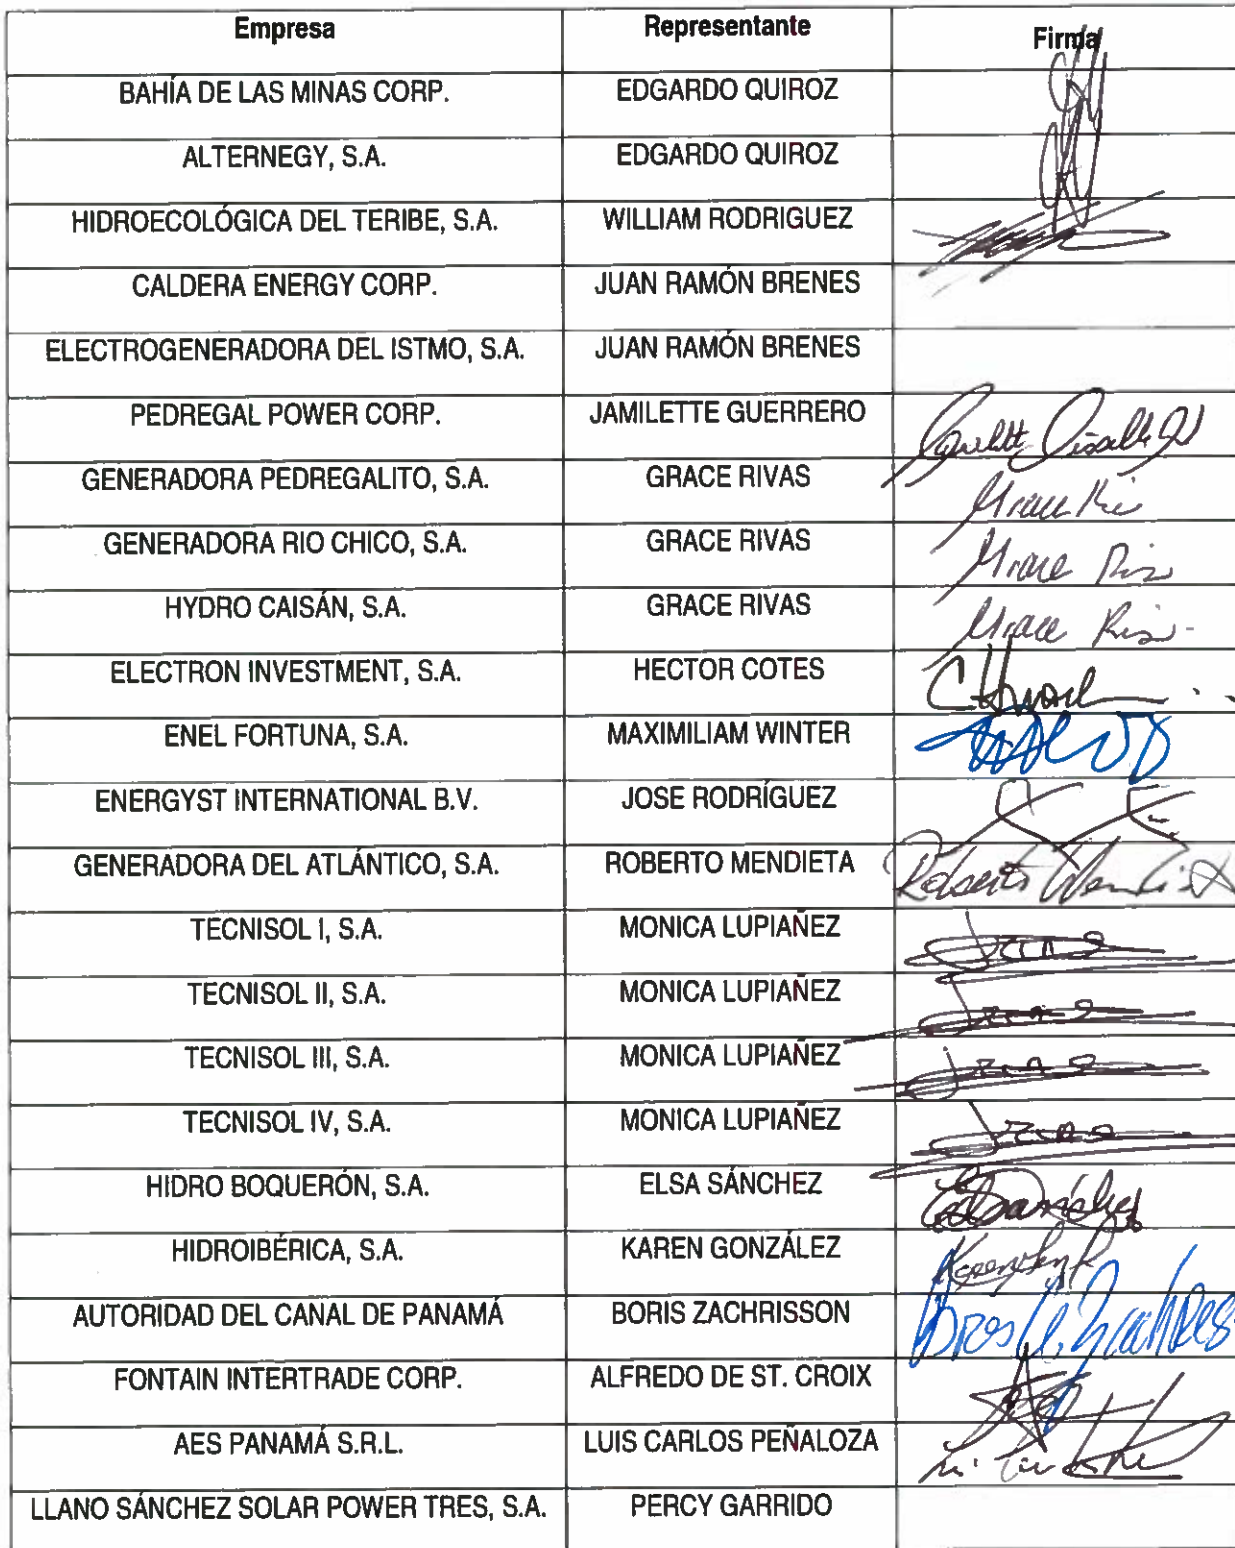 Empresa Representante Firma
BAHÍA DE LAS MINAS CORP. EDGARDO QUIROZ
ALTERNEGY, S.A. EDGARDO QUIROZ
HIDROECOLÓGICA DEL TERIBE, S.A. WILLIAM RODRIGUEZ
CALDERA ENERGY CORP. JUAN RAMÓN BRENES
ELECTROGENERADORA DEL ISTMO, S.A. JUAN RAMÓN BRENES
PEDREGAL POWER CORP. JAMILETTE GUERRERO
GENERADORA PEDREGALITO, S.A. GRACE RIVAS Grace
GENERADORA RIO CHICO, S.A. GRACE RIVAS Grace
HYDRO CAISÁN, S.A. GRACE RIVAS Grace
ELECTRON INVESTMENT, S.A. HECTOR COTES
ENEL FORTUNA, S.A. MAXIMILIAM WINTER
ENERGYST INTERNATIONAL B.V. JOSE RODRÍGUEZ
GENERADORA DEL ATLÁNTICO, S.A. ROBERTO MENDIETA Roberto Mendieta
TECNISOL I, S.A. MONICA LUPIAÑEZ
TECNISOL II, S.A. MONICA LUPIAÑEZ
TECNISOL III, S.A. MONICA LUPIAÑEZ
TECNISOL IV, S.A. MONICA LUPIAÑEZ
HIDRO BOQUERÓN, S.A. ELSA SÁNCHEZ
HIDROIBÉRICA, S.A. KAREN GONZÁLEZ
AUTORIDAD DEL CANAL DE PANAMÁ BORIS ZACHRISSON
FONTAIN INTERTRADE CORP. ALFREDO DE ST. CROIX
AES PANAMÁ S.R.L. LUIS CARLOS PEÑALOZA
LLANO SÁNCHEZ SOLAR POWER TRES, S.A. PERCY GARRIDO